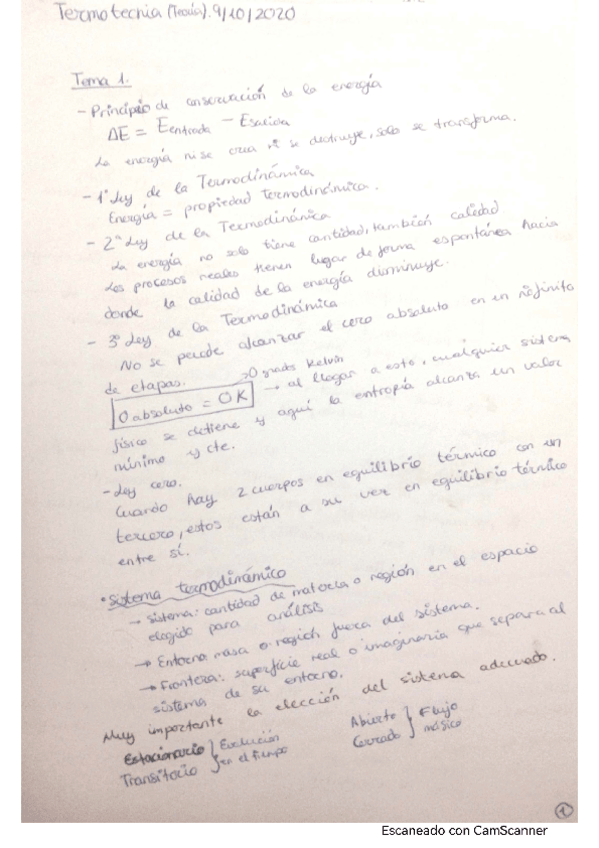 Termotecnia (Teoría). 9/10/2020
Tema 1.
- Principio de conservación de la energía
ΔE = Eentrada - Esalida
La energía ni se crea ni se destruye, solo se transforma.
- 1ª Ley de la Termodinámica
Energía = propiedad Termodinámica.
- 2ª Ley de la Termodinámica
La energía no solo tiene cantidad, también calidad
Los procesos reales tienen lugar de forma espontánea hacia
donde la calidad de la energía disminuye.
- 3ª Ley de la Termodinámica
No se puede alcanzar el cero absoluto en un nº finito
de etapas. → 0 grados Kelvin
0 absoluto = 0 K → al llegar a este, cualquier sistema
físico se detiene y aquí la entropía alcanza un valor
mínimo y cte.
- Ley cero.
Cuando hay 2 cuerpos en equilibrio térmico con un
tercero, estos están a su vez en equilibrio térmico
entre sí.
• Sistema termodinámico
→ Sistema: cantidad de materia o región en el espacio
elegido para análisis
→ Entorno: masa o región fuera del sistema.
→ Frontera: superficie real o imaginaria que separa al
sistema de su entorno.
Muy importante la elección del sistema adecuado.
Estacionario } Evolución Abierto } Flujo
Transitorio } en el tiempo Cerrado } másico
1
Escaneado con CamScanner